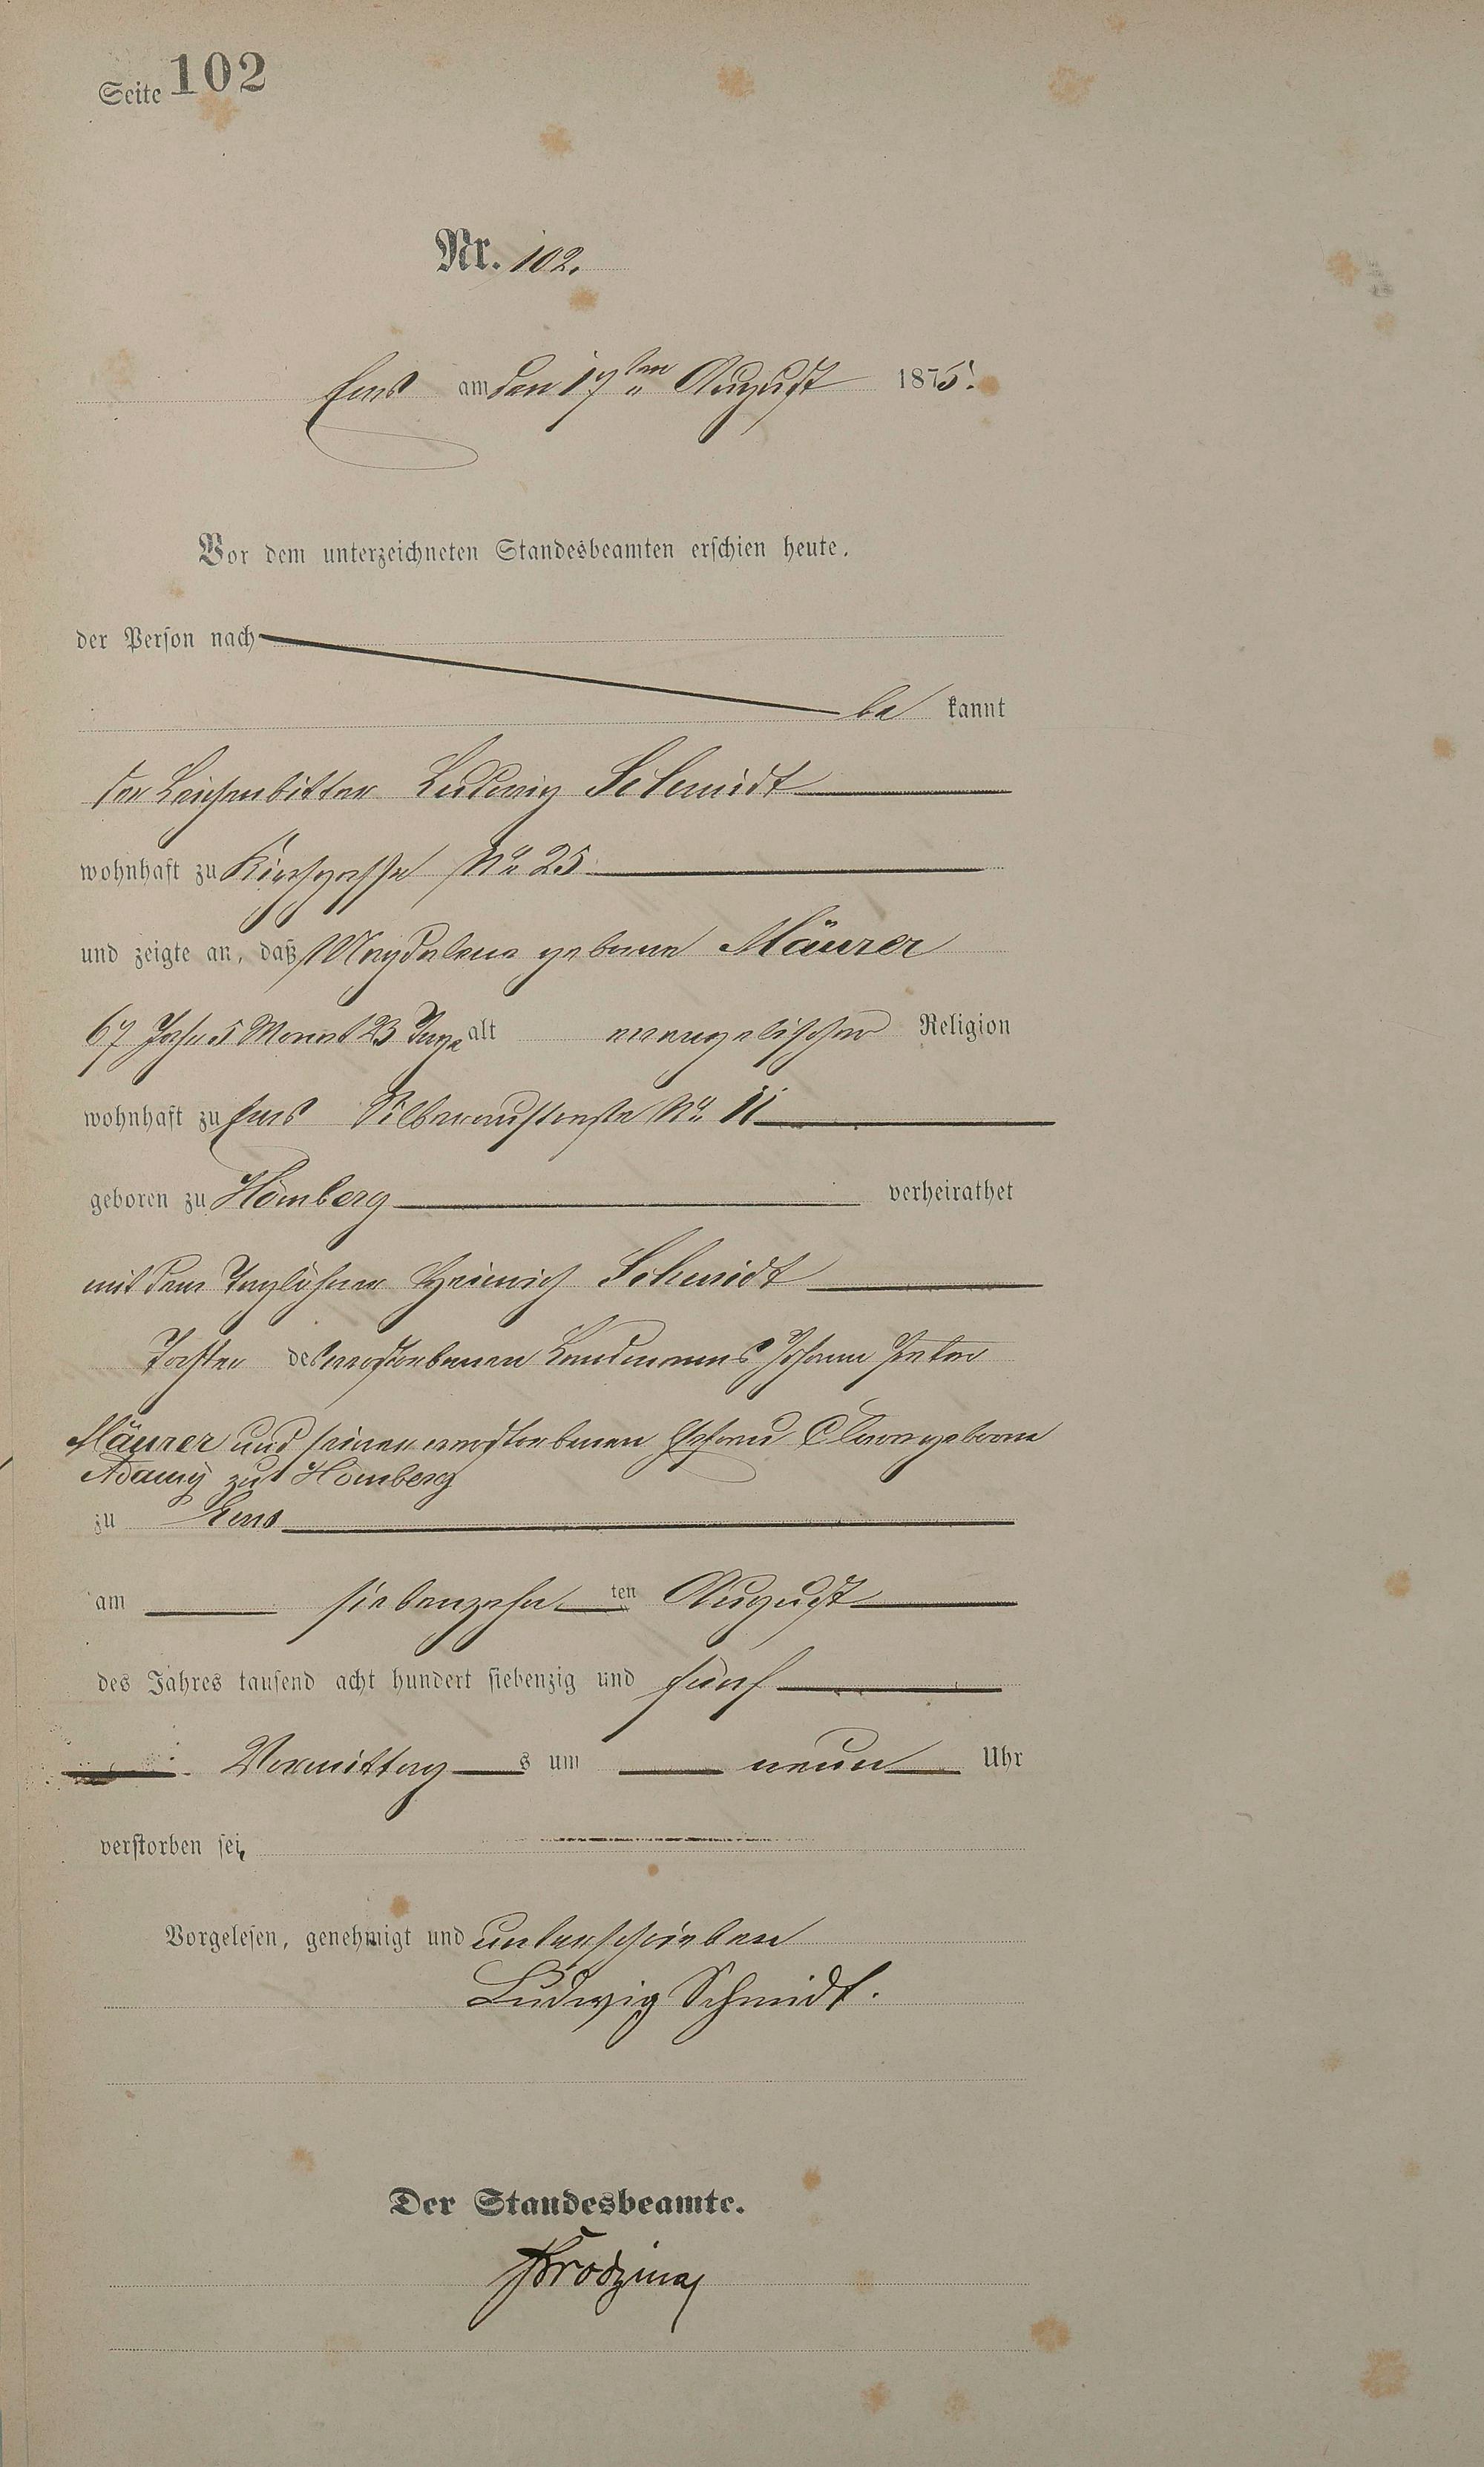 Seite 102
Nr. 102.
Ems am den 17ten August 1875.
Vor dem unterzeichneten Standesbeamten erschien heute,
der Person nach
be kannt
der Leichenbitter Ludwig Schmidt
wohnhaft zu Kirchgasse No 25
und zeigte an, daß Magdalena geborne Mäurer
67 Jahr 5 Monat 23 Tage alt evangelischer Religion
wohnhaft zu Ems Silberaustraße No 11
geboren zu Hömberg verheirathet
mit dem Taglöhner Heinrich Schmidt
Tochter des verstorbenen Landmanns Johann Peter
Mäurer und seiner verstorbenen Ehefrau geborne
Adamÿ zu Hömberg
zu Ems
am siebenzehn ten August
des Jahres tausend acht hundert siebenzig und fünf
Vormittag s um neun Uhr
verstorben sei.
Vorgelesen, genehmigt und unterschrieben
Ludwig Schmidt.
Der Standesbeamte.